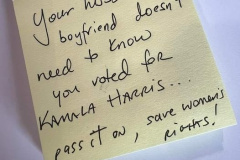 Your hus
boyfriend doesn't
need to know
you voted for
KAMALA HARRIS...
pass it on, save women's
rights!